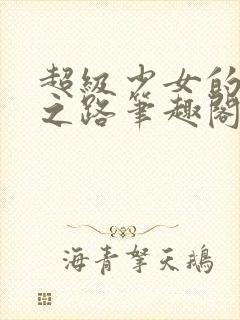 超級少女的
之路筆趣閣
海青拏天鵝